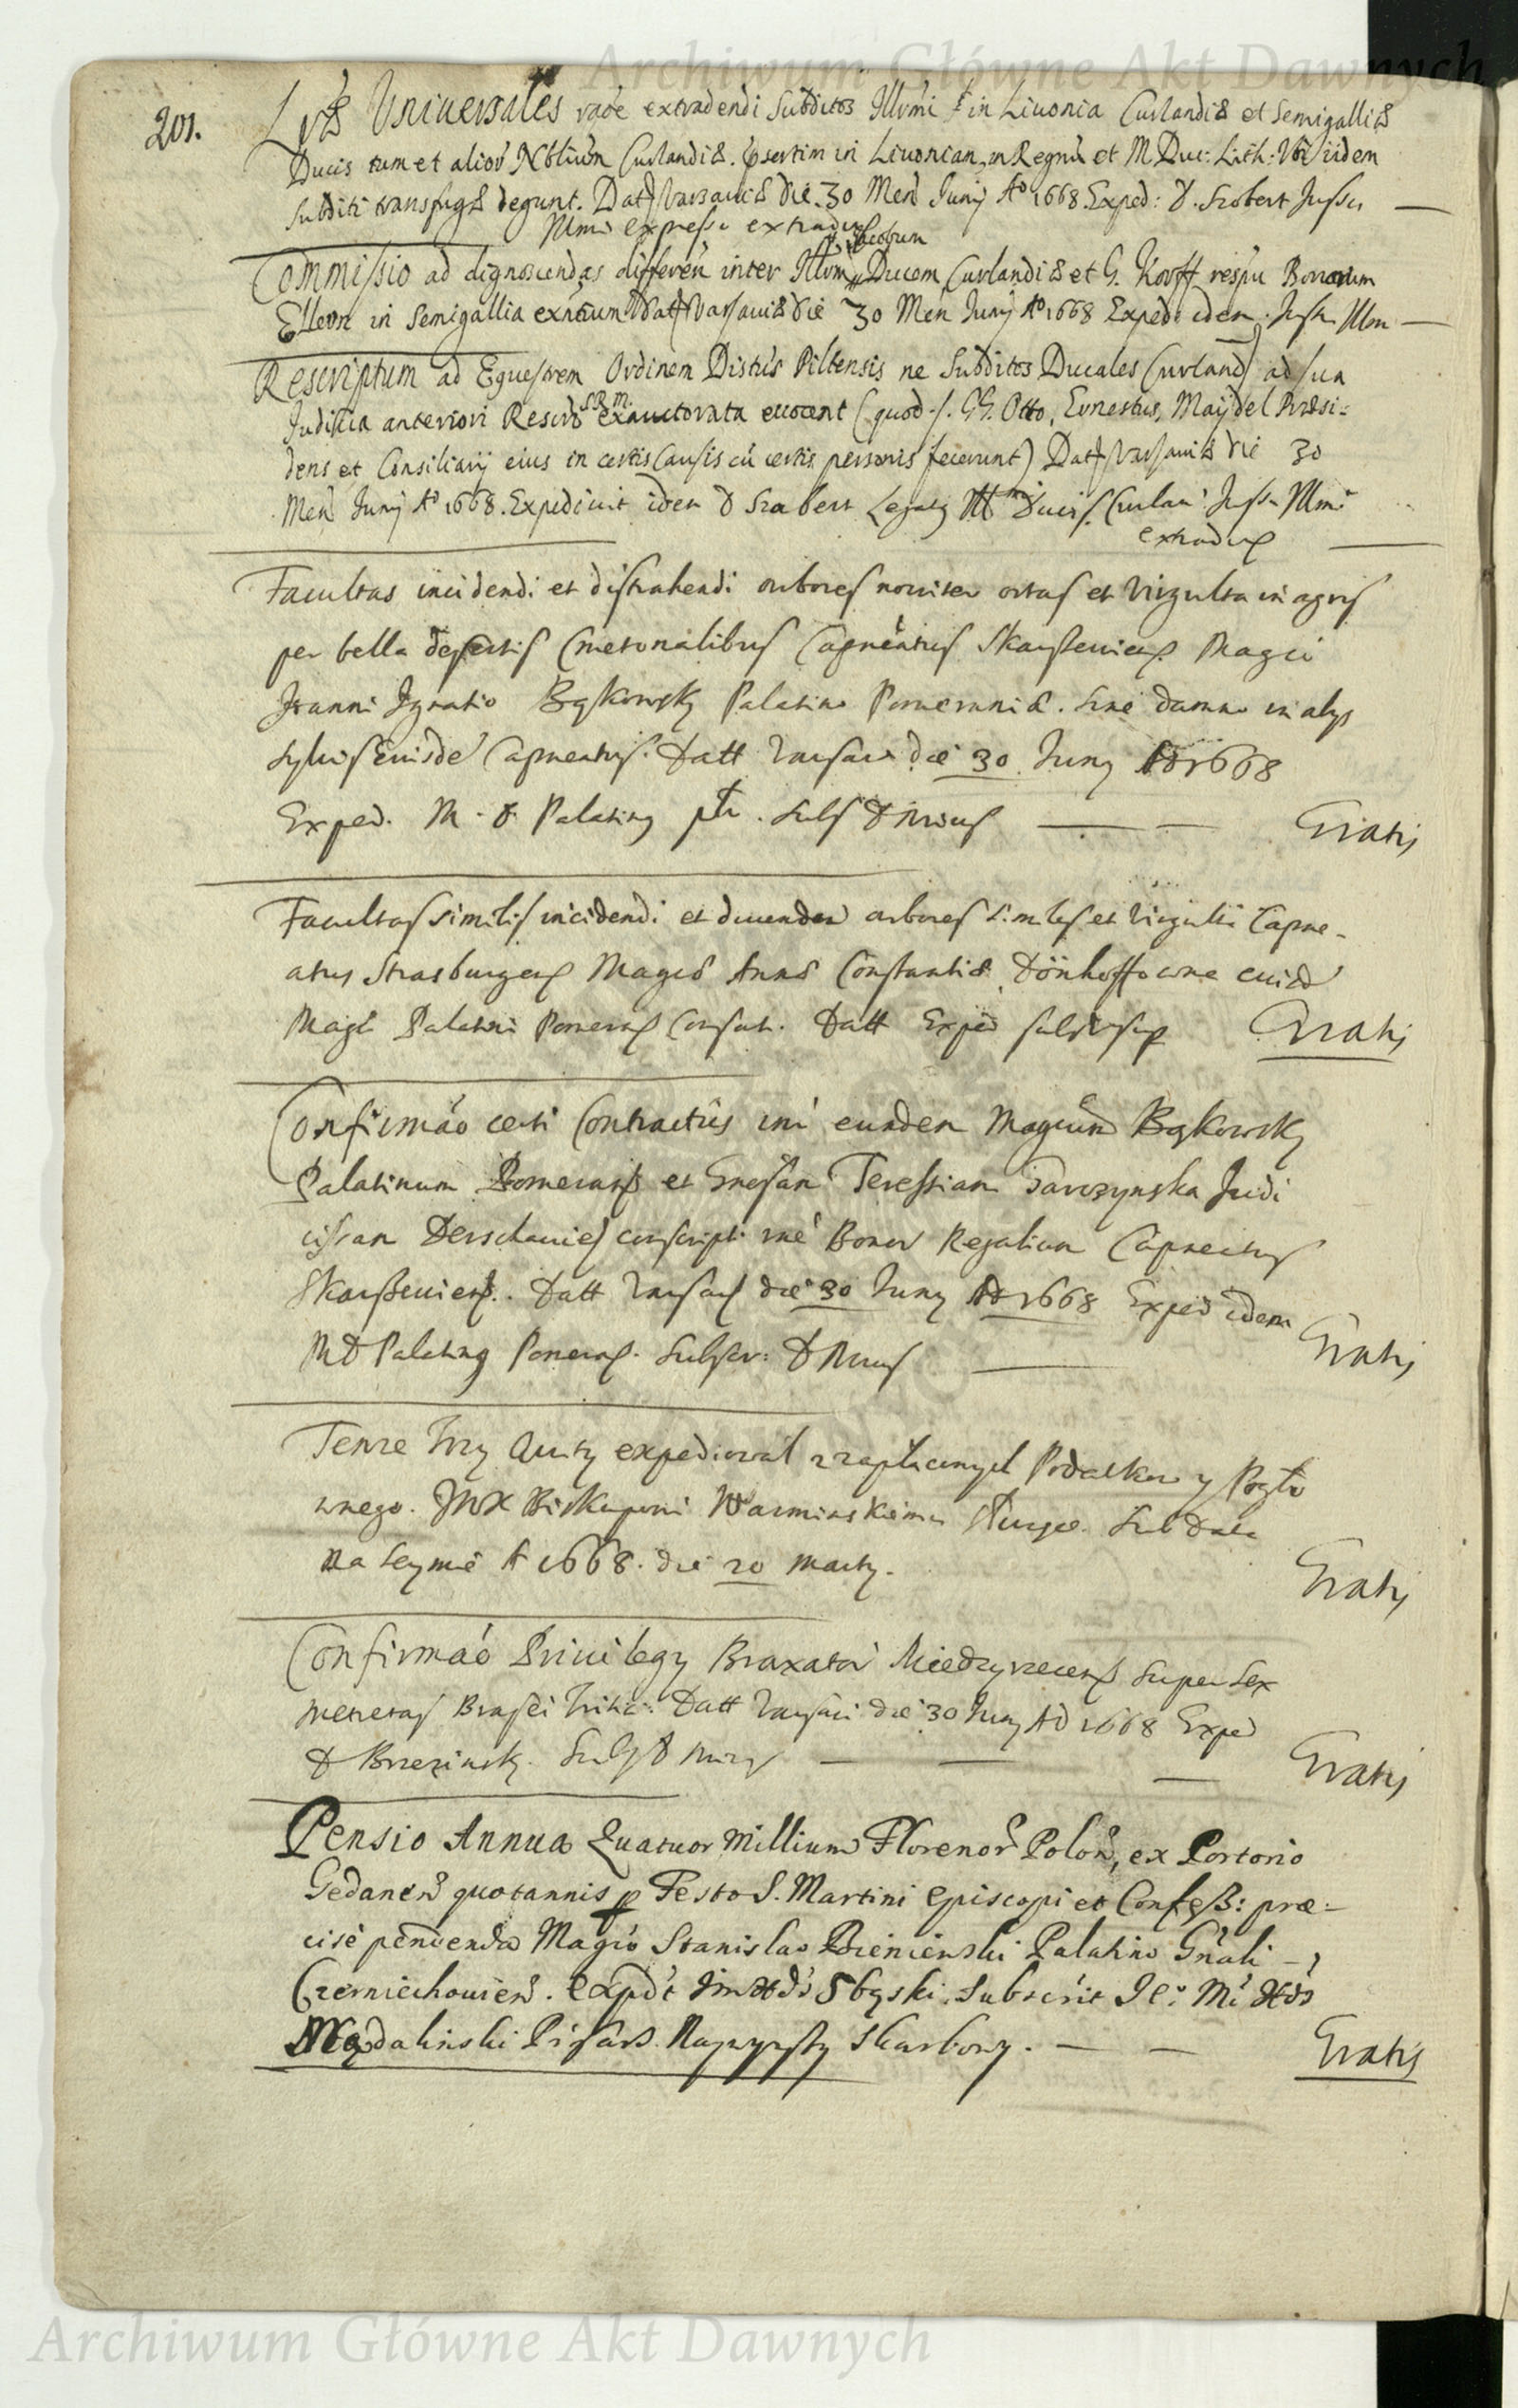 Archiwum Główne Akt Dawnych
201.
Lrae Universales raõe extradendi Subditos Illrmi in Livonia Curlandiae et Semigalliae
Ducis tum et alior Nbliũm Curlandiae. in Livoniam, in Regnũ et M. Duc: Lith: Vbi iidem
subditi transfugae degunt. Datt Varsaviae die 30 Men Junij Aº 1668. Exped: D. Szobert Jussu
Illmi expresso extradens
Jacobum
Commissio ad dignoscendas differeñ inter Illrm Ducem Curlandiae et G. Korff respũ Bonorum
Ellern in Semigallia Datt Varsaviae die 30 Men Junij Aº 1668 Exped: idem. Jussu Illm
Rescriptum ad Equestrem Ordinem Distũs Piltensis ne Subditos Ducales Curland ad sua
S.R.M.
Judicia anteriori Rescrõ exauctorata evocent (quod .s. GG. Otto, Ernestus, Maÿdel Praesi=
dens et Consiliarij eius in certis Causis cũ certis personis fecerunt) Datt Varsaviae die 30
Men Junij Aº 1668. Expedivit idem D Szobert Legatq Illmi Ducis Curlan Jussu Illmi
extradens
Facultas incidendi et distrahendi arbores noviter ortas et virgulta in agris
per bella desertis Cmetonalibus Capneatus Skarszeviens Magco
Joanni Ignatio Bąkowsky Palatino Pomeraniae. Sine damno in alys
sylvis eiusdẽ Capneatus. Datt Varsav die 30 Juny Aõ 1668
Exped. M. D. Palating ptr. Subs D Mius Gratis
Facultas similis incidendi et arbores similes et virgulti Capne-
atus Strasburgens Magcae Annae Constantiae Dönhoffowne eiusd
Magci Palatini Pomerans Consort. Datt Exped subs ut sup Gratis
Confirmão certi Contractũs inř eundem Magcum Bąkowsky
Palatinum Pomerans et Gnosam Teressiam Tarczynska Judi
cissam Derschavies conscripti rnẽ Bonor Regalium Capneatus
Skarszeviens. Datt Varsav die 30 Juny Aõ 1668 Exped idem
MD Palating Pomerans. Subscr: D Mius Gratis
Tenze trzy Quity expediował z zapłaconych Podatkow y Pogło
wnego. JMX Biskupowi Warminskiemu służące. Sub data
na Seymie A 1668. die 20 Marty. Gratis
Confirmão Privilegy Braxator Miedzyrzecens super sex
metretas Brasei tritici. Datt Varsavi die 30 Juny Aõ 1668 Exped
D Brzezinsky. Subs D Mius Gratis
Pensio Annua Quatuor Millium Florenor Polon, ex Portorio
Gedanen quotannis p Festo S. Martini Episcopi et Confess: prae=
cise pendenda Magco Stanislao Bieniewski Palatino Gnali
Czerniechovien. Expdt Sbąski. Subscrit Je: Mc
Mądalinski Pisarz Naywyssy Skarbowy. Gratis
Archiwum Główne Akt Dawnych